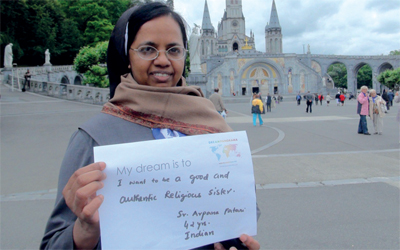 My dream is to
I want to be a good and
authentic Religious Sister.
Sr. Arpana
42 yr.
Indian